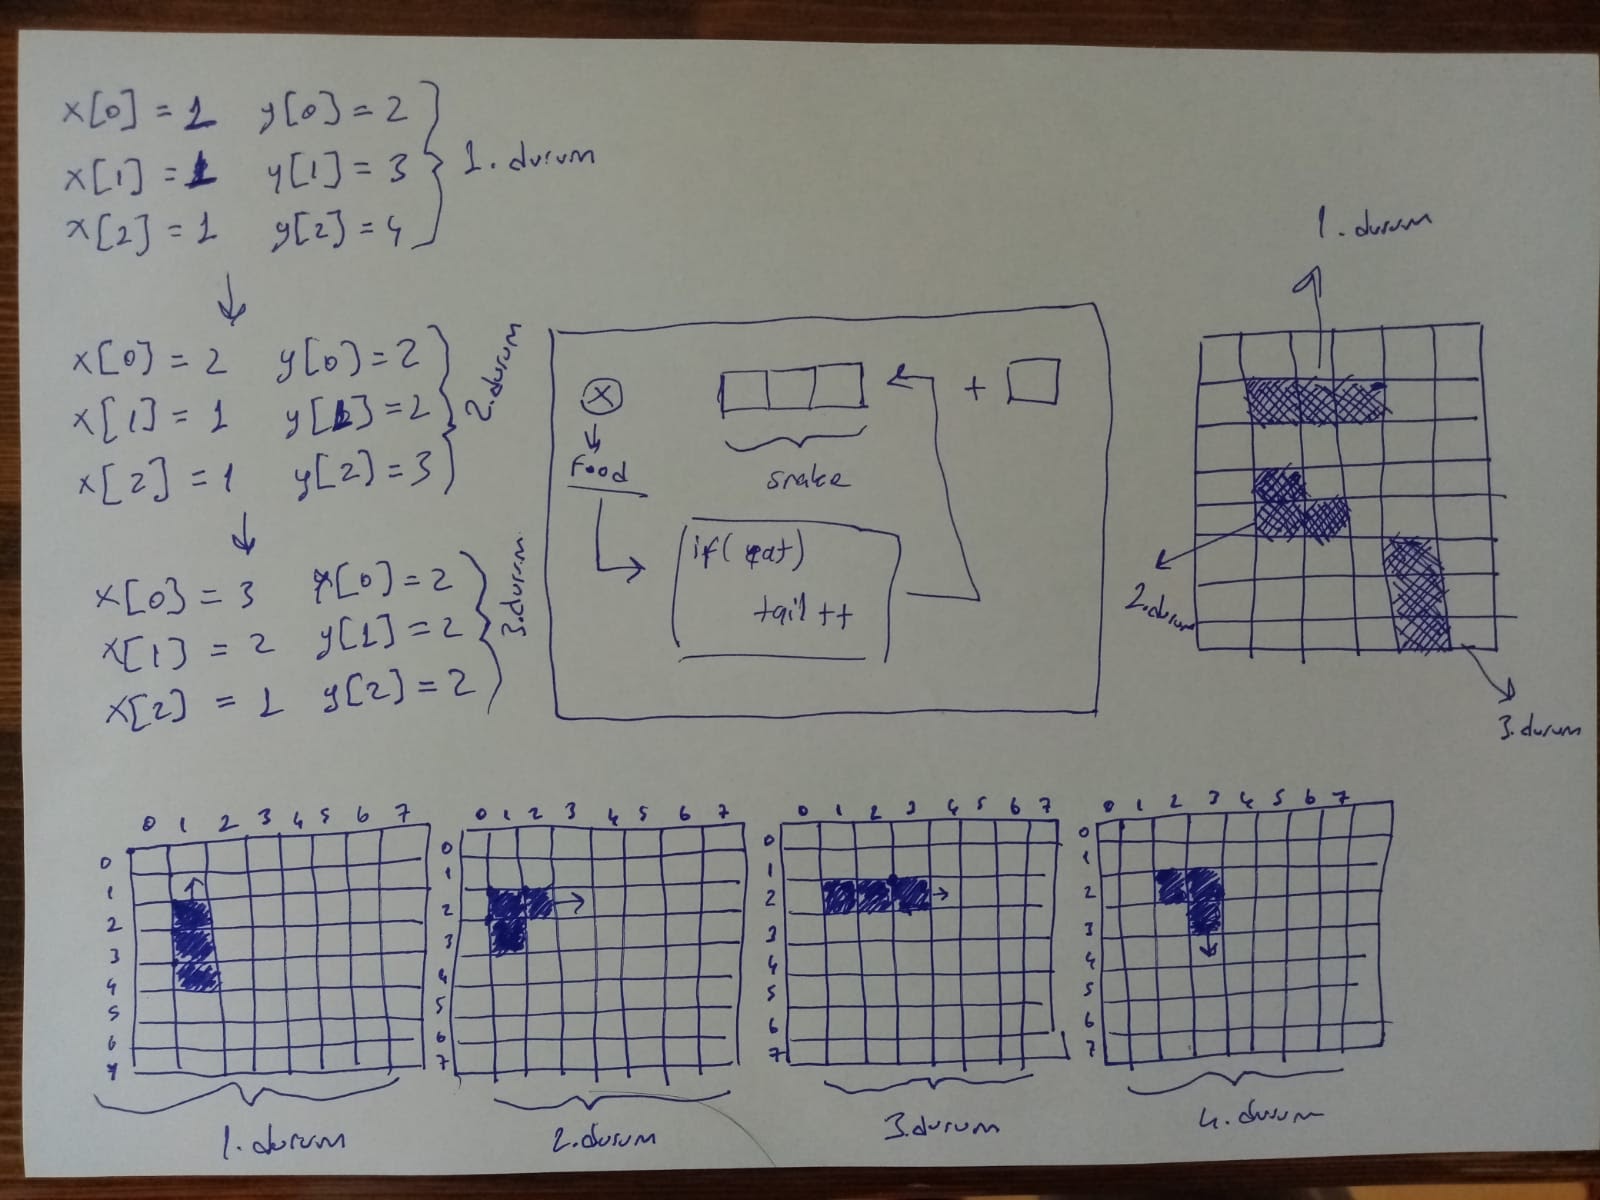 x[0] = 1 y[0] = 2
x[1] = 1 y[1] = 3
x[2] = 1 y[2] = 4
1. durum
x[0] = 2 y[0] = 2
x[1] = 1 y[1] = 2
x[2] = 1 y[2] = 3
2. durum
x[0] = 3 x[0] = 2
x[1] = 2 y[1] = 2
x[2] = 1 y[2] = 2
3. durum
X
Food
snake
+
if(eat)
tail ++
1. durum
2. durum
3. durum
0 1 2 3 4 5 6 7
0
1
2
3
4
5
6
7
1. durum
0 1 2 3 4 5 6 7
0
1
2
3
4
5
6
7
2. durum
0 1 2 3 4 5 6 7
0
1
2
3
4
5
6
7
3. durum
0 1 2 3 4 5 6 7
0
1
2
3
4
5
6
7
4. durum